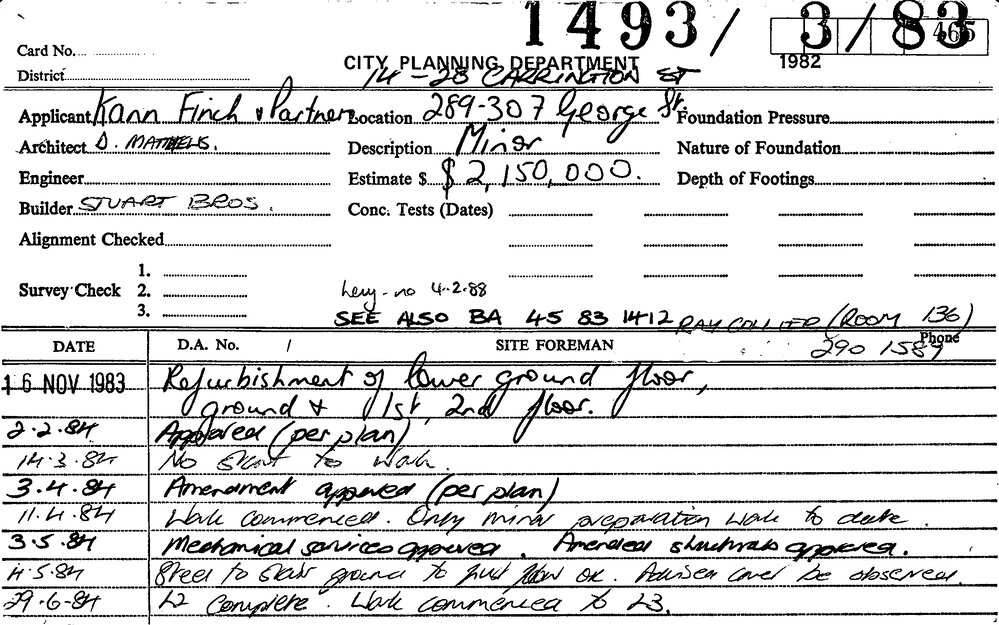 1493/ 3/83
465
Card No.
CITY PLANNING DEPARTMENT 1982
District
14-28 CARRINGTON ST
Applicant Kann Finch & Partners Location 289-307 George St. Foundation Pressure
Architect D. MATTHEWS. Description Minor Nature of Foundation
Engineer Estimate $ $2,150,000. Depth of Footings
Builder STUART BROS. Conc. Tests (Dates)
Alignment Checked
1.
Survey Check 2.
3.
levy-no 4.2.88
SEE ALSO BA 45 83 1412 RAY COLLIER (ROOM 136)
DATE D.A. No. / SITE FOREMAN Phone
290 1589
16 NOV 1983 Refurbishment of lower ground floor,
ground & 1st, 2nd floor.
2.2.84 Approved (per plan)
14.3.84 No Start to Work.
3.4.84 Amendment approved (per plan)
11.4.84 Work commenced. Only minor preparation work to date.
3.5.84 Mechanical services approved. Amended structurals approved.
4.5.84 Steel to stair ground to first floor OK. Advised cover be observed.
29.6.84 L2 Complete. Work commenced to L3.